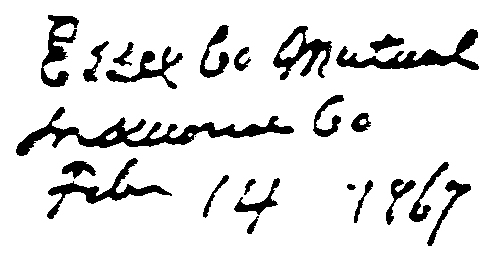 Essex Co Mutual
Insurance Co
Feb 14 1867